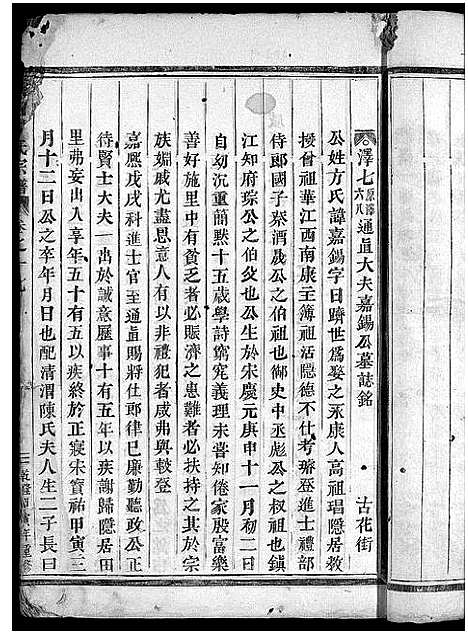 澤七原澤六八通直大夫嘉錫公墓誌銘 古花街
公姓方氏諱嘉錫字曰躋世爲婺之永康人高祖瑥隱居教
授曾祖華江西南康主簿祖活隱德不仕考 登進士禮部
侍郎國子祭酒 公之伯祖也御史中丞彪公之叔祖也鎮
江知府琮公之伯父也公生於宋慶元庚申十一月初二日
自幼沉重簡默十五歲學詩窮究義理未嘗知倦家殷富樂
善好施里中有貧乏者必賑濟之患難者必扶持之其於宗
族姻戚尤盡恩意人有以非禮犯者咸弗與較登
嘉熙戊戌科進士官至通直賜將仕郎律已廉勤聽政公正
待賢士大夫一出於誠意歷事十有五年以疾謝歸隱居田
里弗妄出入享年五十有五以疾終於正寢宋寶祐甲寅三
月十二日公之卒年月日也配清渭陳氏夫人生二子長曰
氏宗譜 卷之
重修